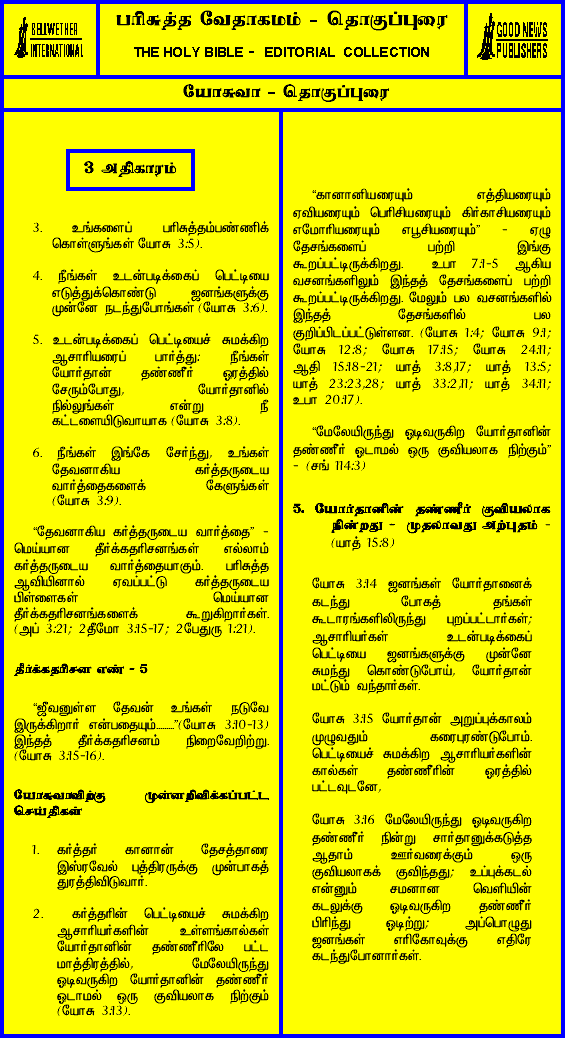 BELLWETHER
INTERNATIONAL
பரிசுத்த வேதாகமம் - தொகுப்புரை
THE HOLY BIBLE - EDITORIAL COLLECTION
GOOD NEWS
PUBLISHERS
யோசுவா - தொகுப்புரை
3 அதிகாரம்
3. உங்களைப் பரிசுத்தம்பண்ணிக்
கொள்ளுங்கள் யோசு 3:5).
4. நீங்கள் உடன்படிக்கைப் பெட்டியை
எடுத்துக்கொண்டு ஜனங்களுக்கு
முன்னே நடந்துபோங்கள் (யோசு 3:6).
5. உடன்படிக்கைப் பெட்டியைச் சுமக்கிற
ஆசாரியரைப் பார்த்து: நீங்கள்
யோர்தான் தண்ணீர் ஓரத்தில்
சேரும்போது, யோர்தானில்
நில்லுங்கள் என்று நீ
கட்டளையிடுவாயாக (யோசு 3:8).
6. நீங்கள் இங்கே சேர்ந்து, உங்கள்
தேவனாகிய கர்த்தருடைய
வார்த்தைகளைக் கேளுங்கள்
(யோசு 3:9).
“தேவனாகிய கர்த்தருடைய வார்த்தை” -
மெய்யான தீர்க்கதரிசனங்கள் எல்லாம்
கர்த்தருடைய வார்த்தையாகும். பரிசுத்த
ஆவியினால் ஏவப்பட்டு கர்த்தருடைய
பிள்ளைகள் மெய்யான
தீர்க்கதரிசனங்களைக் கூறுகிறார்கள்.
(அப் 3:21; 2தீமோ 3:15-17; 2பேதுரு 1:21).
தீர்க்கதரிசன எண் - 5
“ஜீவனுள்ள தேவன் உங்கள் நடுவே
இருக்கிறார் என்பதையும்.........”(யோசு 3:10-13)
இந்தத் தீர்க்கதரிசனம் நிறைவேறிற்று.
(யோசு 3:15-16).
யோசுவாவிற்கு முன்னறிவிக்கப்பட்ட
செய்திகள்
1. கர்த்தர் கானான் தேசத்தாரை
இஸ்ரவேல் புத்திரருக்கு முன்பாகத்
துரத்திவிடுவார்.
2. கர்த்தரின் பெட்டியைச் சுமக்கிற
ஆசாரியர்களின் உள்ளங்கால்கள்
யோர்தானின் தண்ணீரிலே பட்ட
மாத்திரத்தில், மேலேயிருந்து
ஓடிவருகிற யோர்தானின் தண்ணீர்
ஓடாமல் ஒரு குவியலாக நிற்கும்
(யோசு 3:13).
“கானானியரையும் எத்தியரையும்
ஏவியரையும் பெரிசியரையும் கிர்காசியரையும்
எமோரியரையும் எபூசியரையும்” - ஏழு
தேசங்களைப் பற்றி இங்கு
கூறப்பட்டிருக்கிறது. உபா 7:1-5 ஆகிய
வசனங்களிலும் இந்தத் தேசங்களைப் பற்றி
கூறப்பட்டிருக்கிறது. மேலும் பல வசனங்களில்
இந்தத் தேசங்களில் பல
குறிப்பிடப்பட்டுள்ளன. (யோசு 1:4; யோசு 9:1;
யோசு 12:8; யோசு 17:15; யோசு 24:11;
ஆதி 15:18-21; யாத் 3:8,17; யாத் 13:5;
யாத் 23:23,28; யாத் 33:2,11; யாத் 34:11;
உபா 20:17).
“மேலேயிருந்து ஓடிவருகிற யோர்தானின்
தண்ணீர் ஓடாமல் ஒரு குவியலாக நிற்கும்”
- (சங் 114:3)
5. யோர்தானின் தண்ணீர் குவியலாக
நின்றது - முதலாவது அற்புதம் -
(யாத் 15:8)
யோசு 3:14 ஜனங்கள் யோர்தானைக்
கடந்து போகத் தங்கள்
கூடாரங்களிலிருந்து புறப்பட்டார்கள்;
ஆசாரியர்கள் உடன்படிக்கைப்
பெட்டியை ஜனங்களுக்கு முன்னே
சுமந்து கொண்டுபோய், யோர்தான்
மட்டும் வந்தார்கள்.
யோசு 3:15 யோர்தான் அறுப்புக்காலம்
முழுவதும் கரைபுரண்டுபோம்.
பெட்டியைச் சுமக்கிற ஆசாரியர்களின்
கால்கள் தண்ணீரின் ஓரத்தில்
பட்டவுடனே,
யோசு 3:16 மேலேயிருந்து ஓடிவருகிற
தண்ணீர் நின்று சார்தானுக்கடுத்த
ஆதாம் ஊர்வரைக்கும் ஒரு
குவியலாகக் குவிந்தது; உப்புக்கடல்
என்னும் சமனான வெளியின்
கடலுக்கு ஓடிவருகிற தண்ணீர்
பிரிந்து ஓடிற்று; அப்பொழுது
ஜனங்கள் எரிகோவுக்கு எதிரே
கடந்துபோனார்கள்.